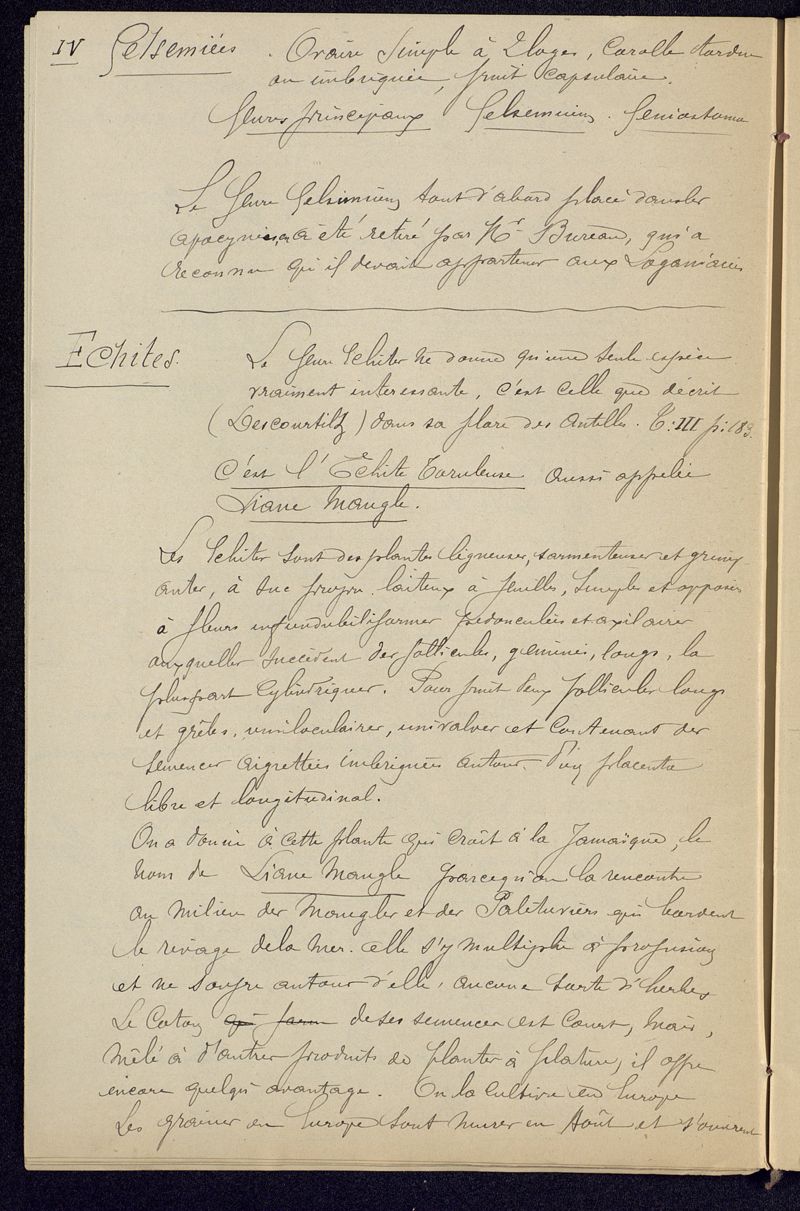 IV Gelsemiées . Ovaire simple à 2 loges, Corolle tordue
ou imbriquée, fruit capsulaire.
Genres principaux Gelsemium . Geniostoma
Le Genre Gelsemium tout d'abord placé dans les
apocynées, a été retiré par Mr Bureau, qui a
reconnu qu'il devait appartenir aux Loganiacées
Echites.
Le Genre Echites ne donne qu'une seule espèce
vraiment interessante, c'est celle que décrit
(Descourtilz) dans sa flore des Antilles. T: III p: 183.
C'est l'Echite Toruleuse aussi appelée
Liane Mangle.
Les Echites sont des plantes ligneuses, sarmenteuses et grimp
antes, à suc propre laiteux à feuilles, simples et opposées
à fleurs infundibiliformes pédonculées et axilaires
auxquelles succèdent des follicules, géminés, longs, la
pluspart cylindriques. Pour fruit deux follicules longs
et grêles, uniloculaires, univalves et contenant des
semences aigrettées imbriquées autour d'un placenta
libre et longitudinal.
On a donné à cette plante qui croît à la Jamaïque, le
nom de Liane Mangle parcequ'on la rencontre
au milieu des Mangles et des Palétuviers qui bordent
le rivage de la mer. elle s'y multiplie à profusion
et ne soufre autour d'elle, aucune sorte d'herbes
Le Coton qui form de ses semences est court, mais,
mêlé à d'autres produits de plantes à filature, il offre
encore quelqu'avantage. On la cultive en Europe
Les graines en Europe sont mures en Août et s'ouvrent